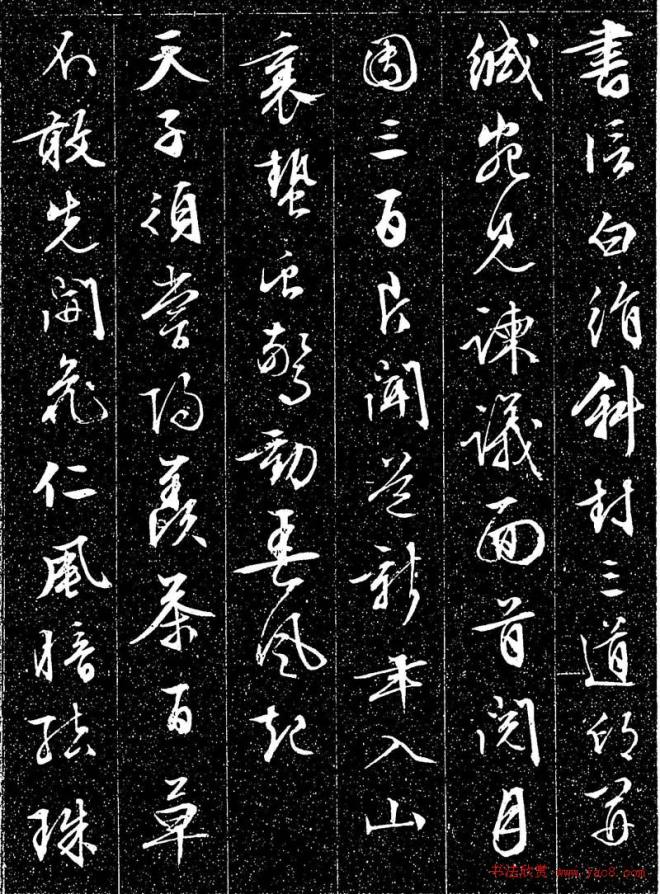 書信白絹斜封三道印開
緘宛見諫議面首閱月
團三百片聞道新年入山
裏蟄虫驚動春風起
天子須嘗陽羨茶百草
不敢先開花仁風暗結珠
书法欣赏 www.yac8.com